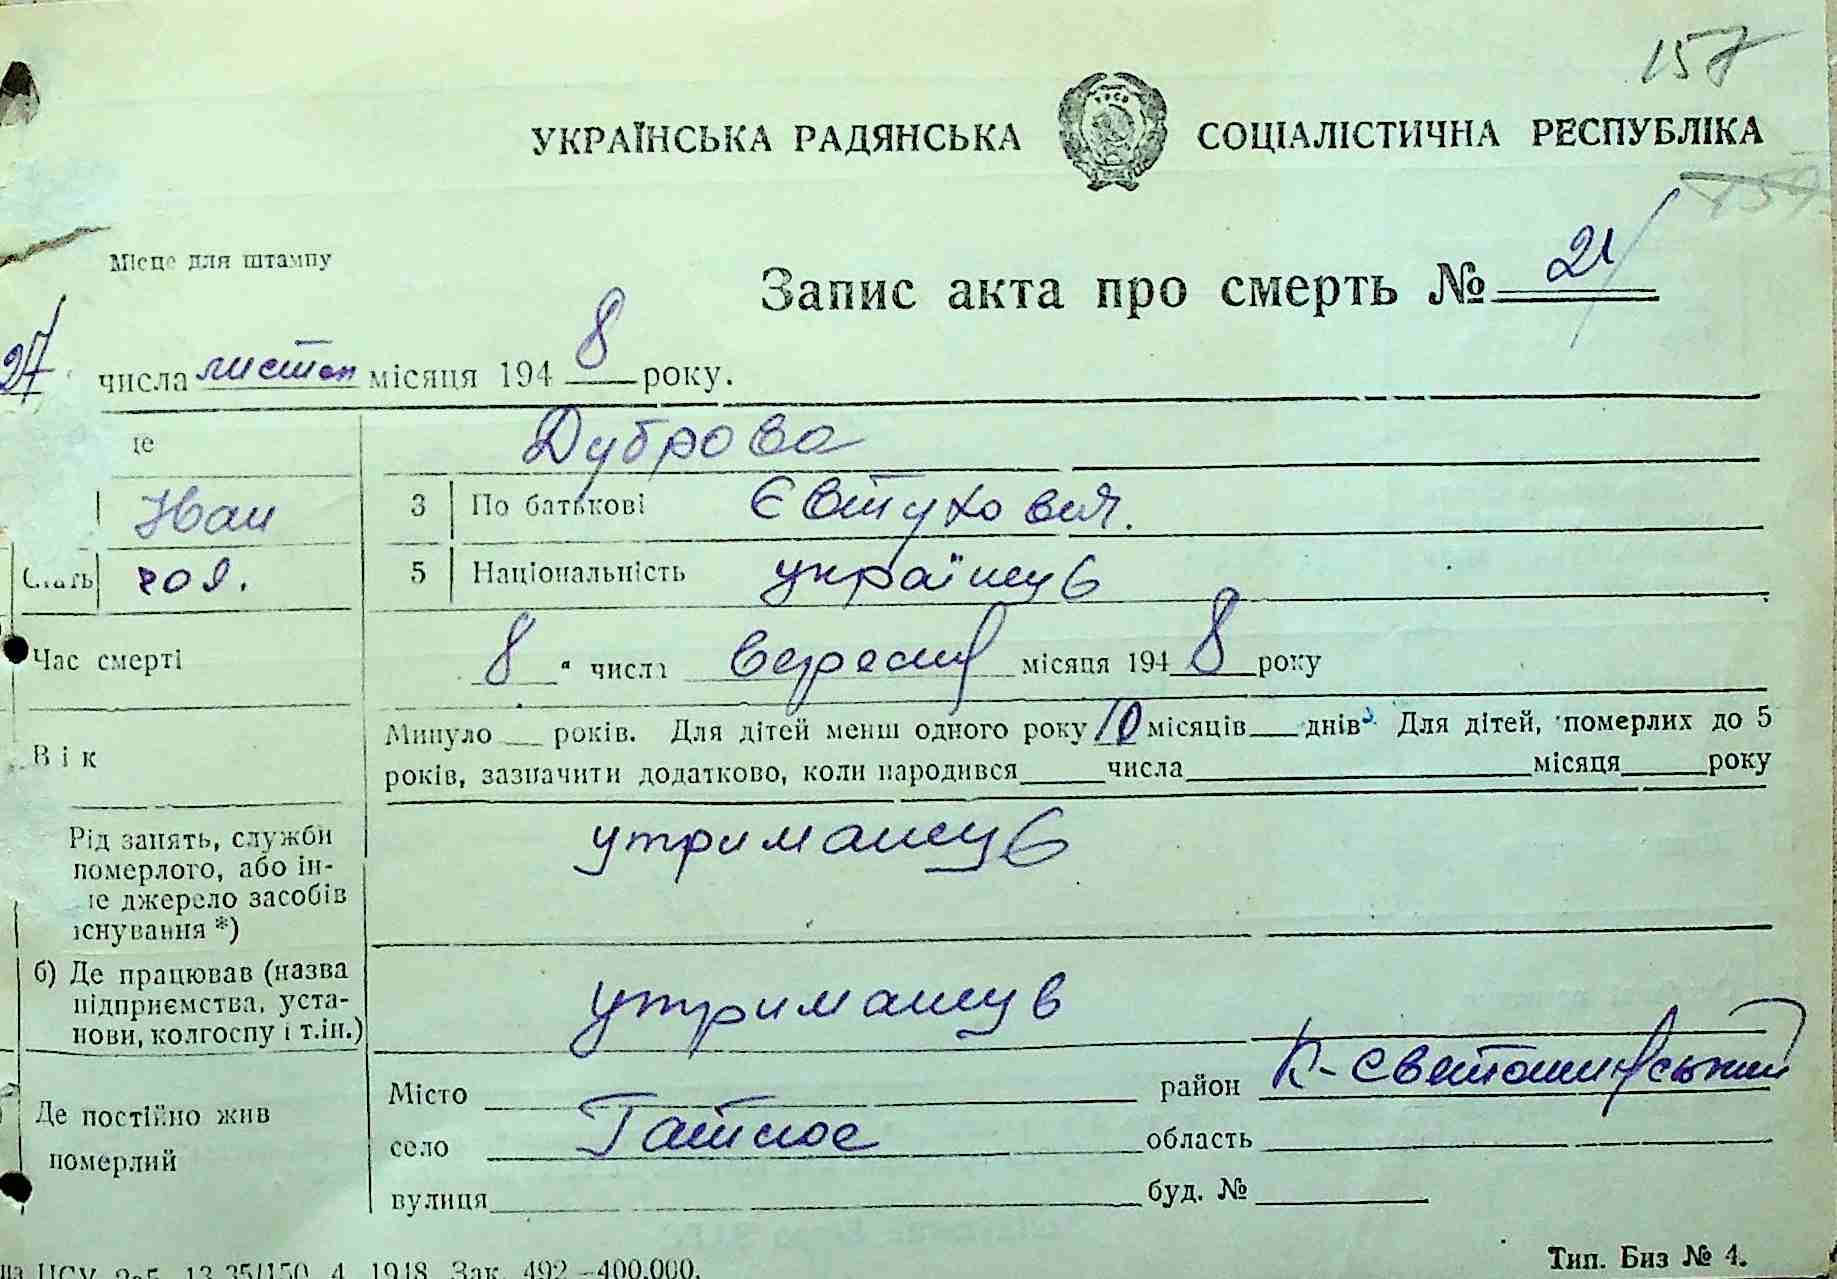 157
УКРАЇНСЬКА РАДЯНСЬКА СОЦІАЛІСТИЧНА РЕСПУБЛІКА
Місце для штампу
Запис акта про смерть № 21
27 числа листоп місяця 1948 року.
це Дуброва
Иван 3 По батькові Євтухович.
Стать чол. 5 Національність українець
Час смерті 8 " числа вересня місяця 1948 року
Вік
Минуло __ років. Для дітей менш одного року 10 місяців __ днів Для дітей, померлих до 5
років, зазначити додатково, коли народився __ числа __ місяця __ року
Рід занять, служби
померлого, або ін-
ше джерело засобів
існування *)
утриманець
б) Де працював (назва
підприємства, уста-
нови, колгоспу і т.ін.)
утриманець
Де постійно жив
померлий
Місто __ район К-Святошинський
село Гатное область
вулиця __ буд. №
ЦСУ 13 35/150 4 1948 Зак. 492 –400.000.
Тип. Биз № 4.